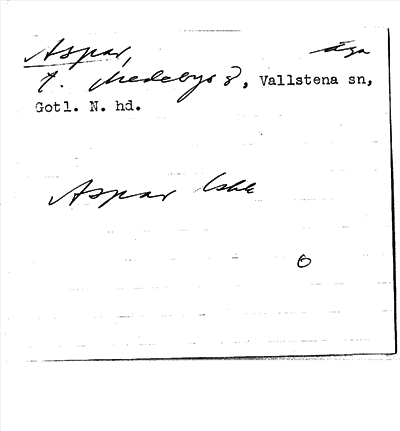 Aspar, äga
t. Medebys 8, Vallstena sn,
Gotl. N. hd.
Aspar Iskk